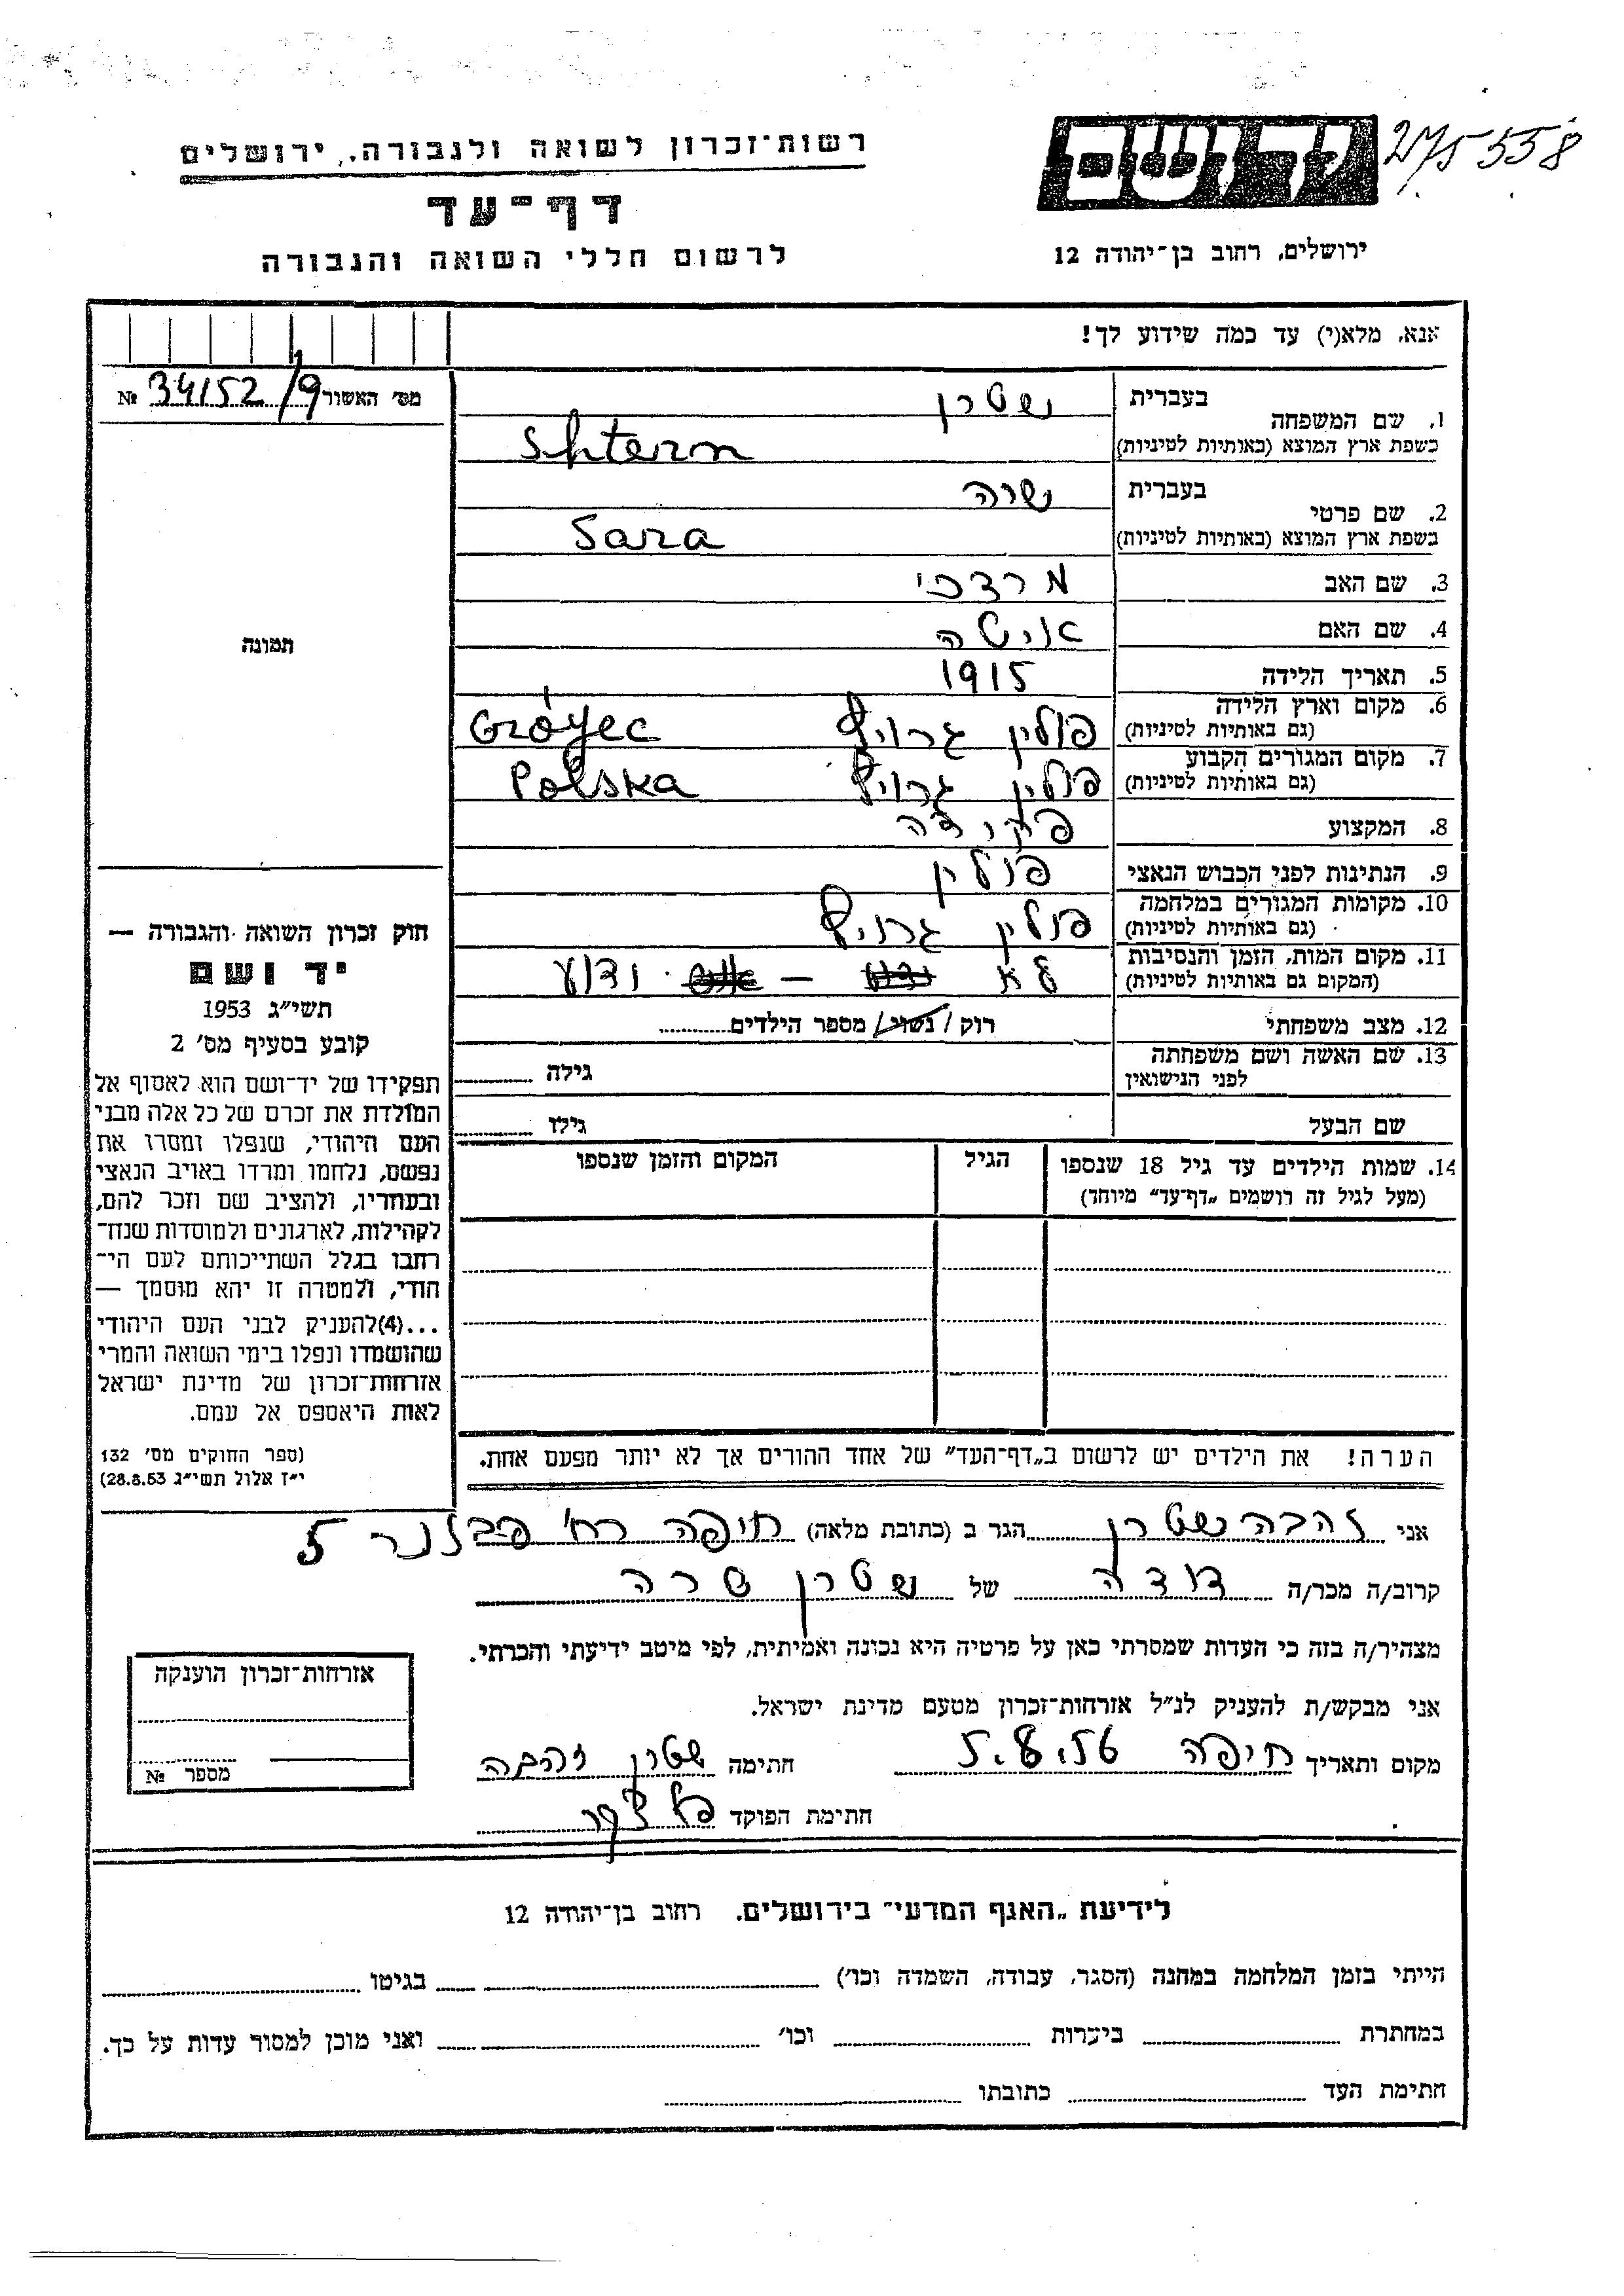 275558
יד ושם
רשות־זכרון לשואה ולגבורה, ירושלים
דף־עד
ירושלים, רחוב בן־יהודה 12
לרשום חללי השואה והגבורה
אנא, מלא(י) עד כמה שידוע לך!
מס׳ האשור 34152/9 №
תמונה
1. שם המשפחה
בעברית שטרן
בשפת ארץ המוצא (באותיות לטיניות) Shtern
2. שם פרטי
בעברית שרה
בשפת ארץ המוצא (באותיות לטיניות) Sara
3. שם האב מרדכי
4. שם האם איטה
5. תאריך הלידה 1915
6. מקום וארץ הלידה
(גם באותיות לטיניות) פולין גרויץ Grójec
7. מקום המגורים הקבוע
(גם באותיות לטיניות) פולין גרויץ Polska
8. המקצוע פקידה
9. הנתינות לפני הכבוש הנאצי פולין
10. מקומות המגורים במלחמה
(גם באותיות לטיניות) פולין גרויץ
11. מקום המות, הזמן והנסיבות
(המקום גם באותיות לטיניות) לא — ידוע
12. מצב משפחתי רוק / נשוי / מספר הילדים
13. שם האשה ושם משפחתה
לפני הנישואין גילה
שם הבעל גילו
14. שמות הילדים עד גיל 18 שנספו הגיל המקום והזמן שנספו
(מעל לגיל זה רושמים „דף־עד״ מיוחד)
הערה! את הילדים יש לרשום ב„דף־העד״ של אחד ההורים אך לא יותר מפעם אחת.
חוק זכרון השואה והגבורה —
יד ושם
תשי״ג 1953
קובע בסעיף מס׳ 2
תפקידו של יד־ושם הוא לאסוף אל
המולדת את זכרם של כל אלה מבני
העם היהודי, שנפלו ומסרו את
נפשם, נלחמו ומרדו באויב הנאצי
ובעוזריו, ולהציב שם וזכר להם,
לקהילות, לארגונים ולמוסדות שנח־
רבו בגלל השתייכותם לעם הי־
הודי, ולמטרה זו יהא מוסמך —
...(4)להעניק לבני העם היהודי
שהושמדו ונפלו בימי השואה והמרי
אזרחות־זכרון של מדינת ישראל
לאות היאספם אל עמם.
(ספר החוקים מס׳ 132
י״ז אלול תשי״ג 28.8.53)
אני זהבה שטרן הגר ב (כתובת מלאה) חיפה רח׳ 5
קרוב/ה מכר/ה דודה של שטרן שרה
מצהיר/ה בזה כי העדות שמסרתי כאן על פרטיה היא נכונה ואמיתית, לפי מיטב ידיעתי והכרתי.
אני מבקש/ת להעניק לנ״ל אזרחות־זכרון מטעם מדינת ישראל.
מקום ותאריך חיפה 5.8.56 חתימה שטרן זהבה
חתימת הפוקד
אזרחות־זכרון הוענקה
מספר №
לידיעת „האגף המדעי״ בירושלים. רחוב בן־יהודה 12
הייתי בזמן המלחמה במחנה (הסגר, עבודה, השמדה וכו׳) בגיטו
במחתרת ביערות וכו׳ ואני מוכן למסור עדות על כך.
חתימת העד כתובתו